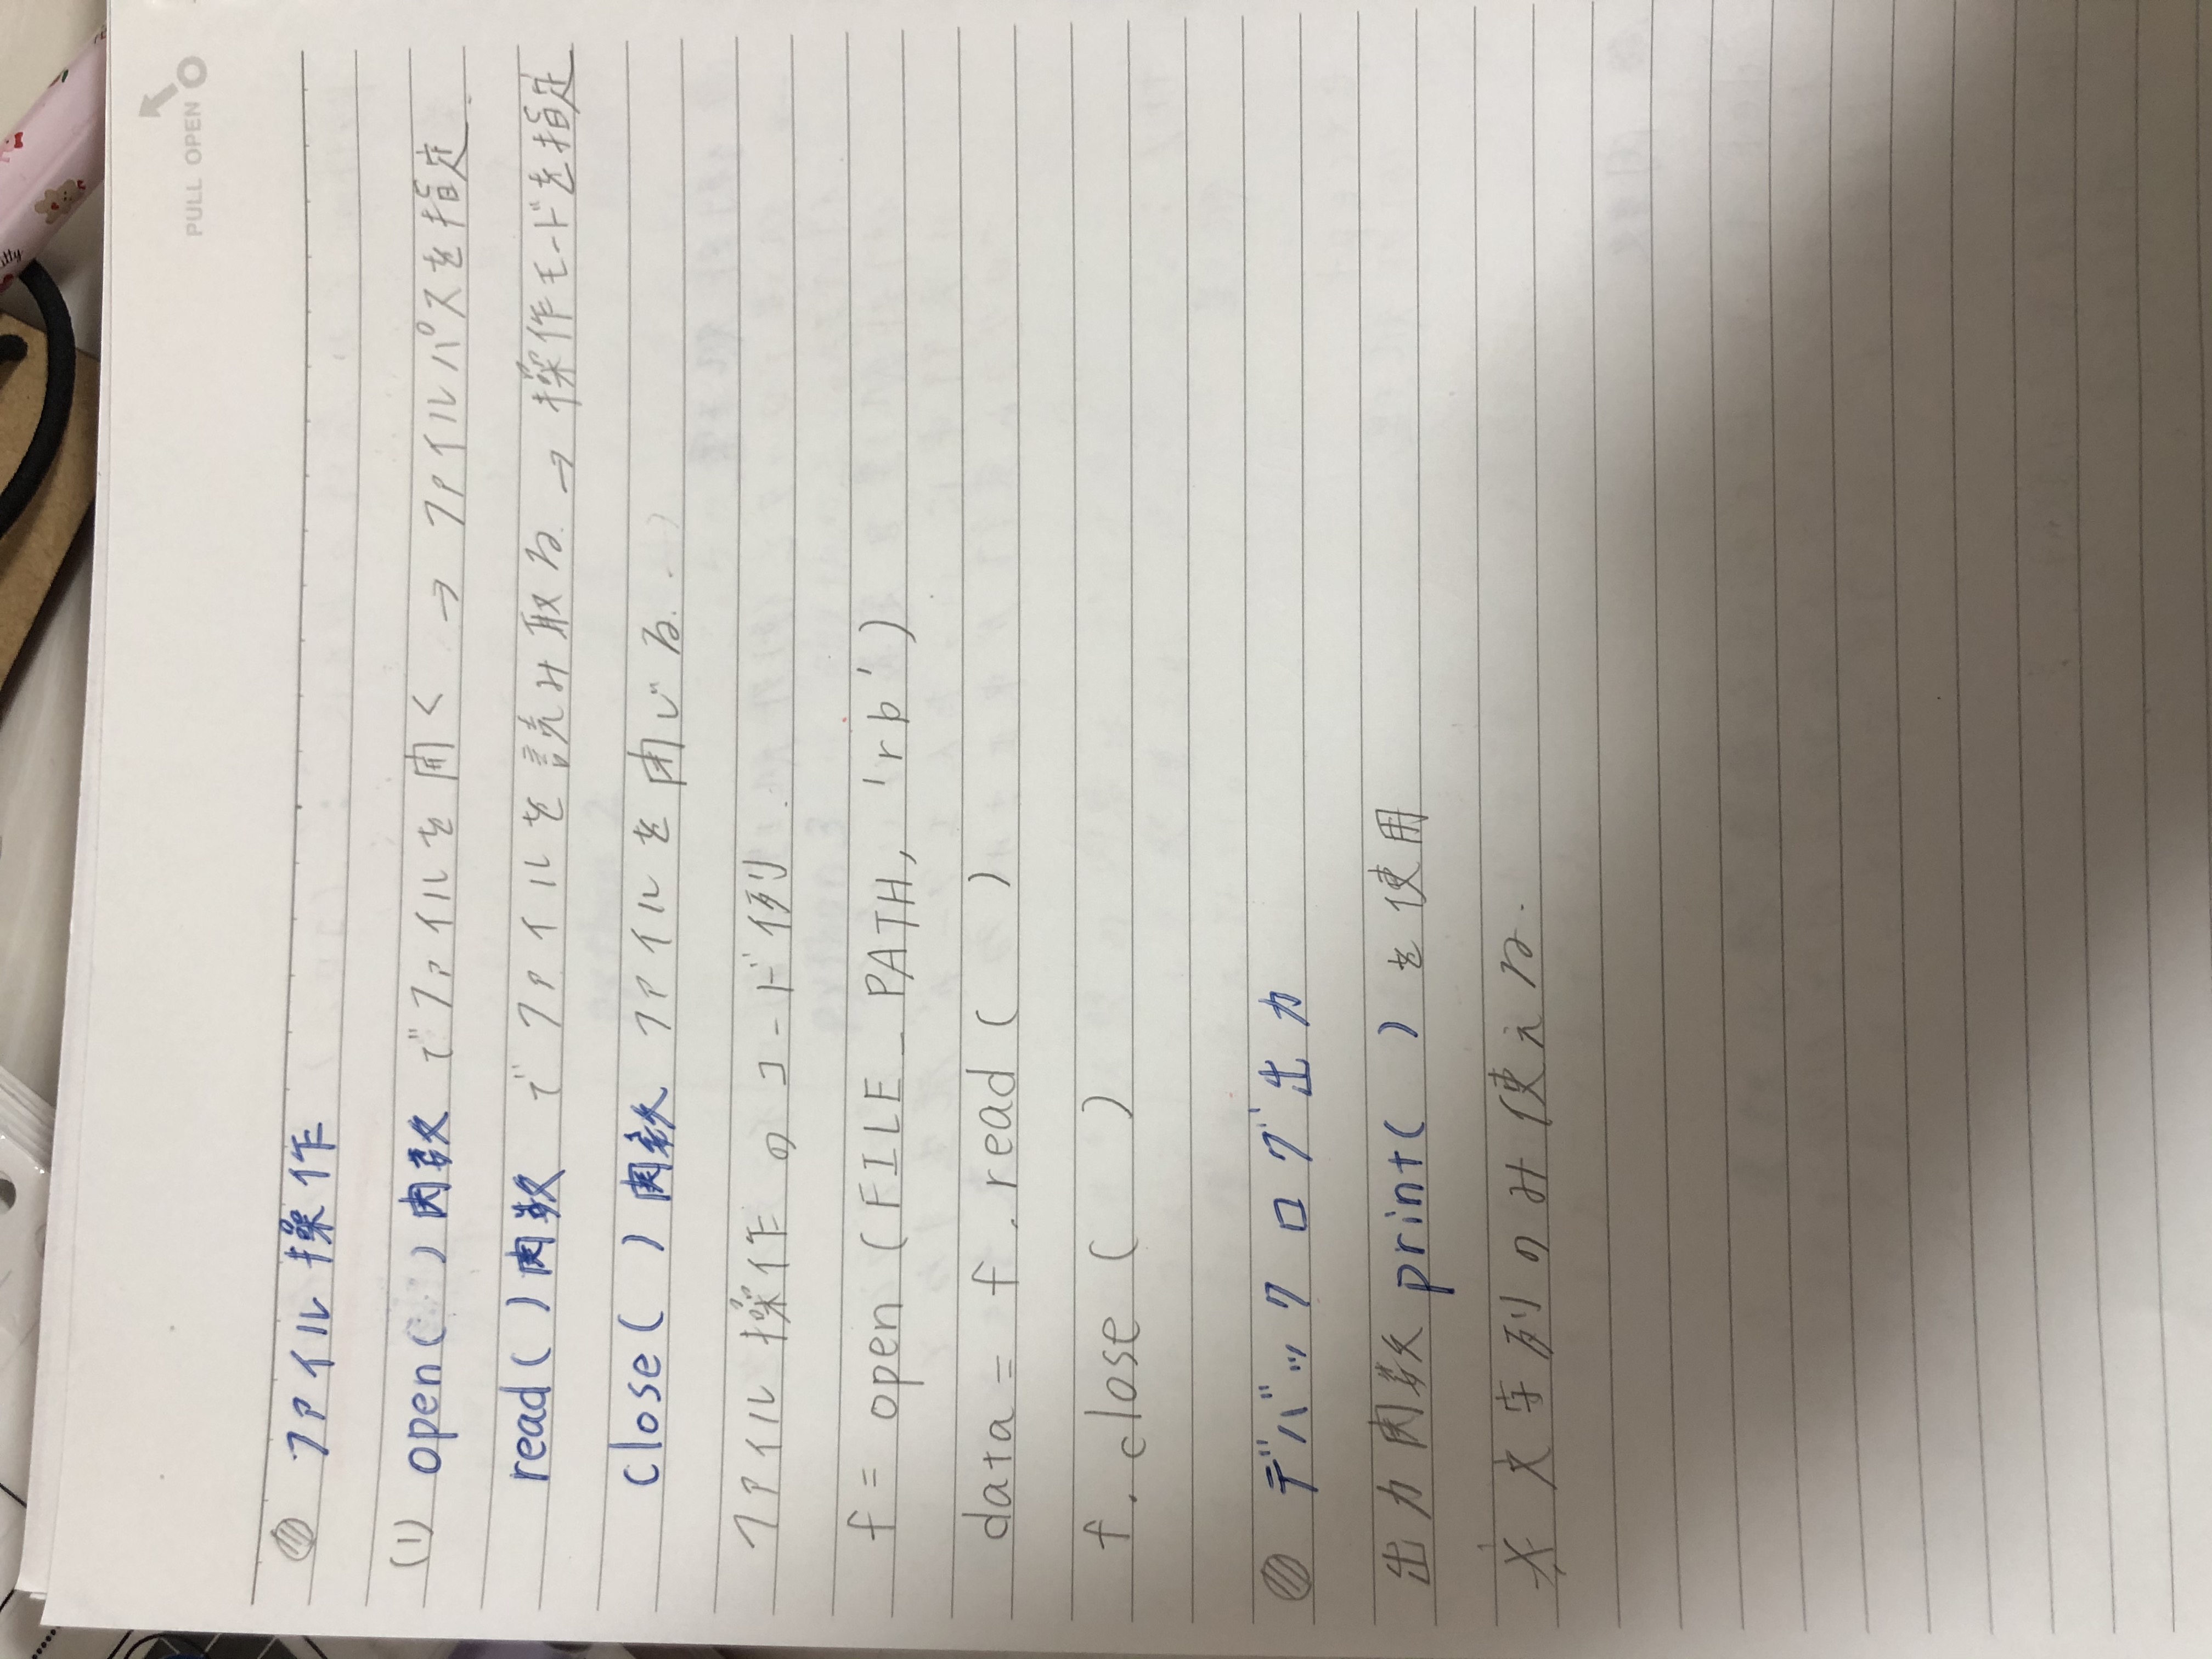 PULL OPEN
ファイル操作
(1) open( )関数でファイルを開く → ファイルパスを指定
read( )関数でファイルを読み取る. → 操作モードを指定
close( )関数 ファイルを閉じる.
ファイル操作のコード例.
f = open (FILE_PATH, 'rb')
data = f.read ( )
f.close ( )
デバックログ出力
出力関数 print( ) を使用
※ 文字列のみ使える.